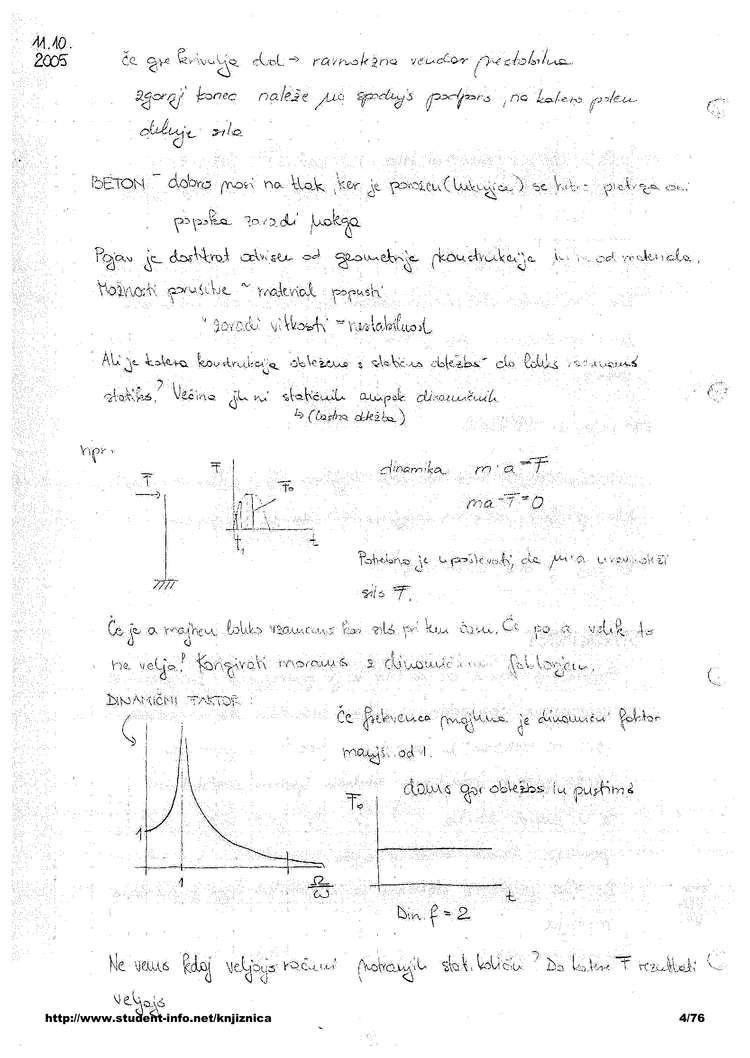 11.10.
2005
če gre krivulja dol → ravnotežna vendar prestabilna
zgornji konec naleže na spodnjo podporo, na katero potem
deluje sila
BETON - dobro nosi na tlak, ker je porozen (luknjice) se hitro pretrga oni
popoka zaradi
Pojav je dostikrat odvisen od geometrije konstrukcije in in od materiala.
Možnosti porušitve ~ material popusti
" zaradi vitkosti - nestabilnost
Ali je katera konstrukcija obtežena s statično obtežbo - do lahko
statiko? Večina jih ni statičnih ampak dinamičnih
↳ (lastna obtežba)
npr.
F
F
F₀
t₁
t
dinamika m·a = F
ma - F = 0
Potrebno je upoštevati, da m·a uravnoteži
silo F.
Če je a majhen lahko vzamemo kot silo pri tem času. Če pa a velik to
ne velja! moramo z dinamičnim faktorjem.
DINAMIČNI FAKTOR:
Če frekvenca majhna je dinamični faktor
manjši od 1.
damo gor obtežbo in pustimo
1
1
Ω
ω
F₀
t
Din. f = 2
Ne vemo kdaj veljajo računi notranjih stat. količin? Do katere F rezultati
veljajo
http://www.student-info.net/knjiznica
4/76